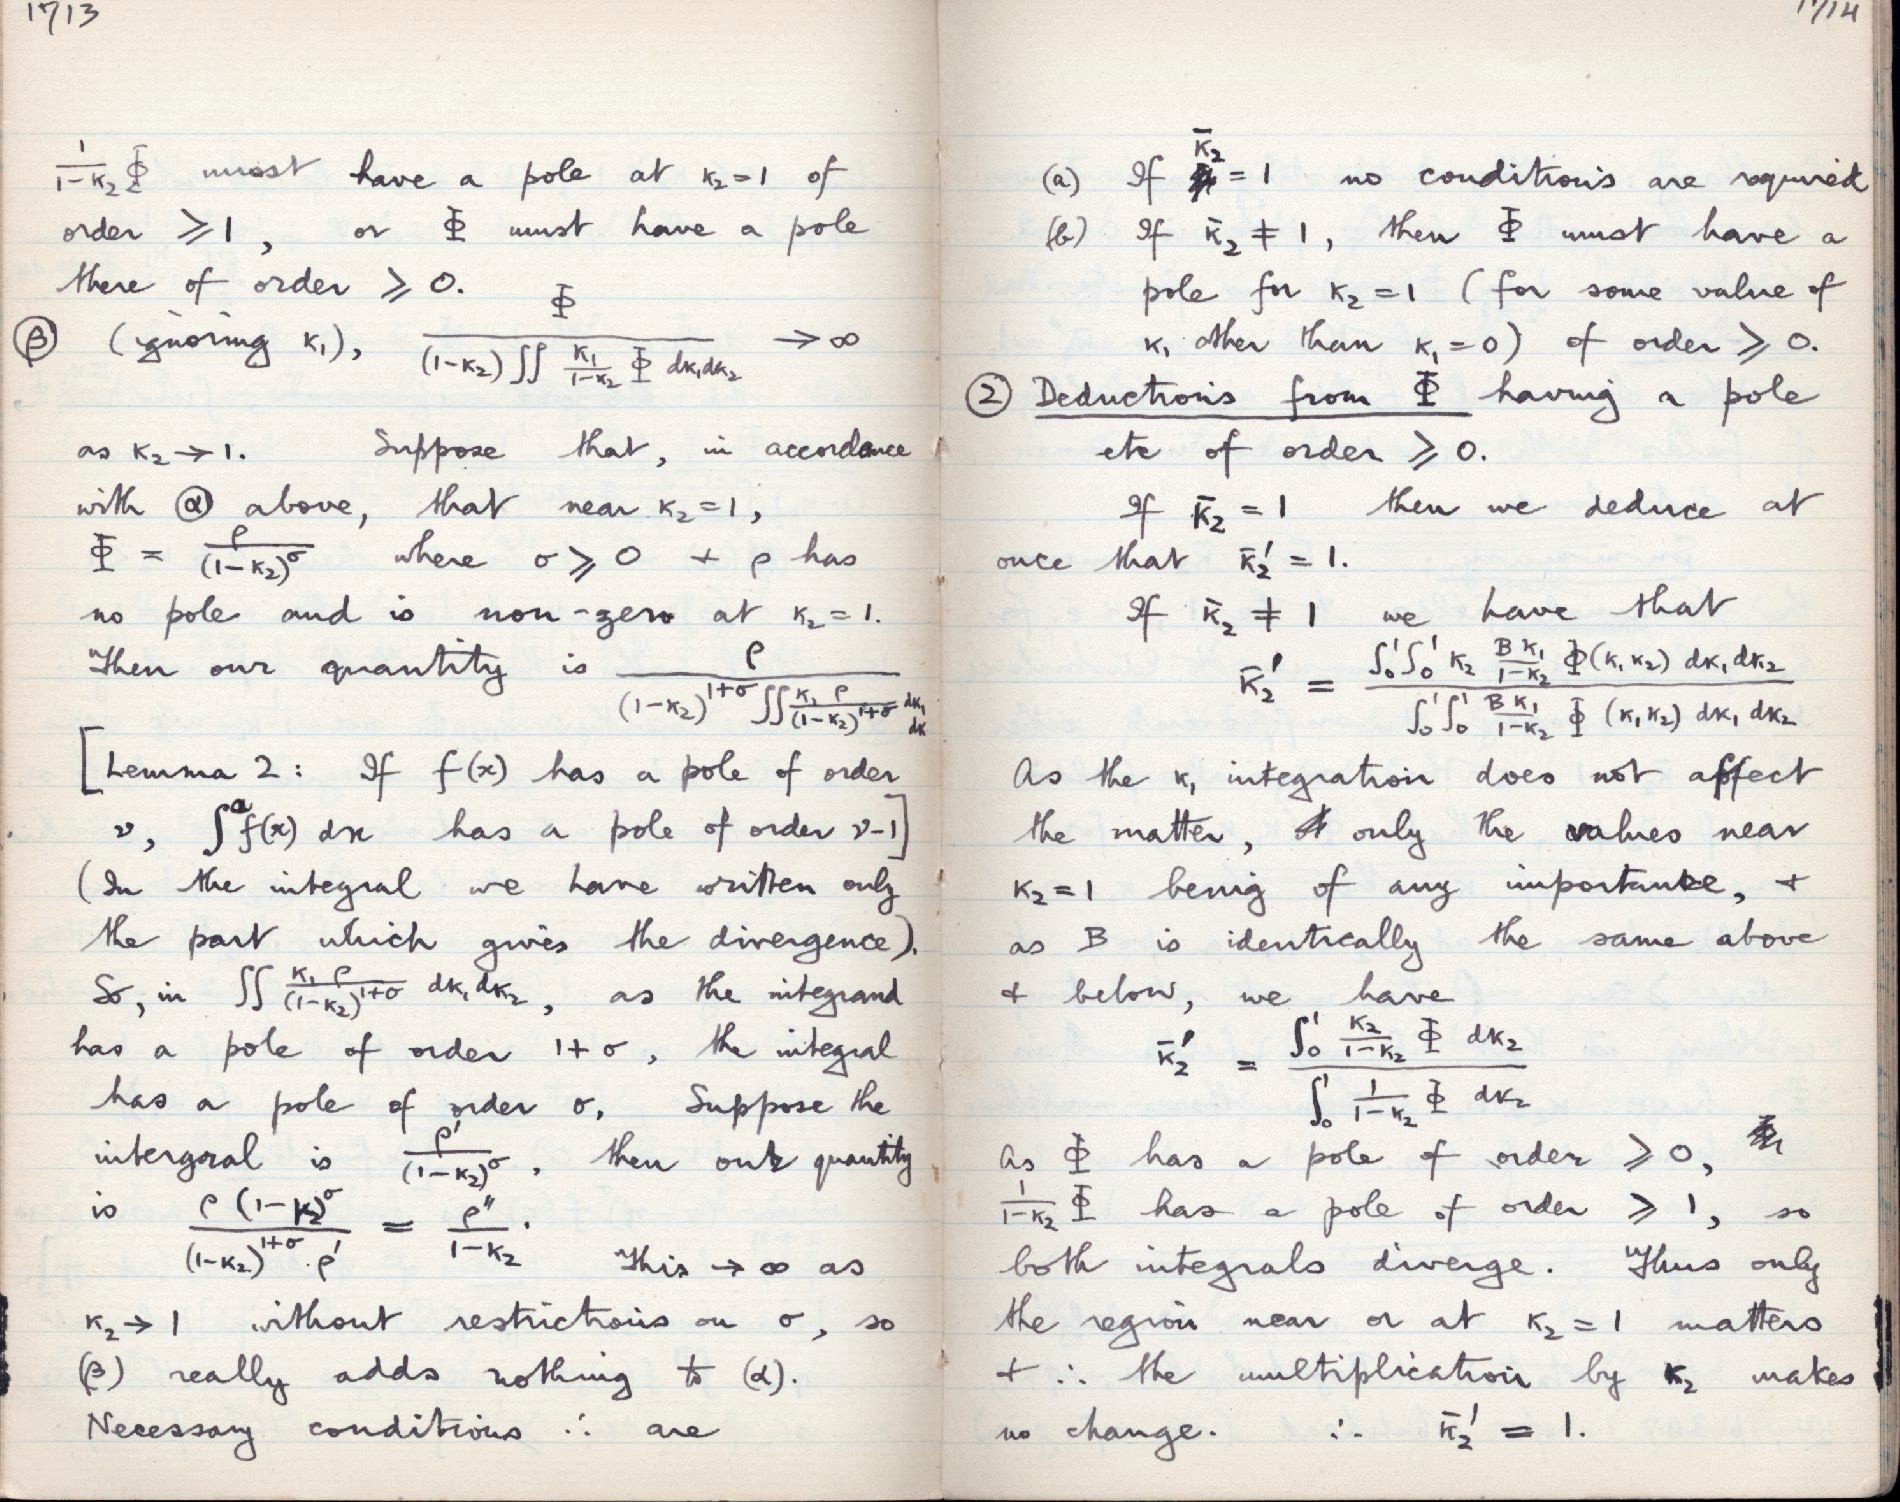 1713
1/(1-κ₂) Φ must have a pole at κ₂=1 of
order ⩾1, or Φ must have a pole
there of order ⩾ 0.
(β) (ignoring κ₁), Φ / ((1-κ₂) ∬ κ₁/(1-κ₂) Φ dκ₁dκ₂) → ∞
as κ₂ → 1. Suppose that, in accordance
with (α) above, that near κ₂=1,
Φ = ρ/(1-κ₂)^σ where σ ⩾ 0 + ρ has
no pole and is non-zero at κ₂=1.
Then our quantity is ρ / ((1-κ₂)^(1+σ) ∬ κ₁ρ/(1-κ₂)^(1+σ) dκ₁ dκ)
[Lemma 2: If f(x) has a pole of order
ν, ∫^a f(x) dx has a pole of order ν-1]
(In the integral we have written only
the part which gives the divergence).
So, in ∬ κ₁ρ/(1-κ₂)^(1+σ) dκ₁dκ₂, as the integrand
has a pole of order 1+σ, the integral
has a pole of order σ. Suppose the
intergral is ρ'/(1-κ₂)^σ, then our quantity
is ρ(1-κ₂)^σ / ((1-κ₂)^(1+σ) . ρ') = ρ''/(1-κ₂).
This → ∞ as
κ₂→1 without restrictions on σ, so
(β) really adds nothing to (α).
Necessary conditions ∴ are
1714
(a) If κ̄₂ = 1 no conditions are required
(b) If κ̄₂ ≠ 1, then Φ must have a
pole for κ₂=1 (for some value of
κ₁ other than κ₁=0) of order ⩾ 0.
(2) Deductions from Φ having a pole
etc of order ⩾ 0.
If κ̄₂ = 1 then we deduce at
once that κ̄₂' = 1.
If κ̄₂ ≠ 1 we have that
κ̄₂' = ∫₀¹∫₀¹ κ₂ Bκ₁/(1-κ₂) Φ(κ₁κ₂) dκ₁dκ₂ / ∫₀¹∫₀¹ Bκ₁/(1-κ₂) Φ (κ₁κ₂) dκ₁ dκ₂
As the κ₁ integration does not affect
the matter, only the values near
κ₂=1 being of any importance, +
as B is identically the same above
+ below, we have
κ̄₂' = ∫₀¹ κ₂/(1-κ₂) Φ dκ₂ / ∫₀¹ 1/(1-κ₂) Φ dκ₂
As Φ has a pole of order ⩾ 0,
1/(1-κ₂) Φ has a pole of order ⩾ 1, so
both integrals diverge. Thus only
the region near or at κ₂=1 matters
+ ∴ the multiplication by κ₂ makes
no change. ∴ κ̄₂' = 1.